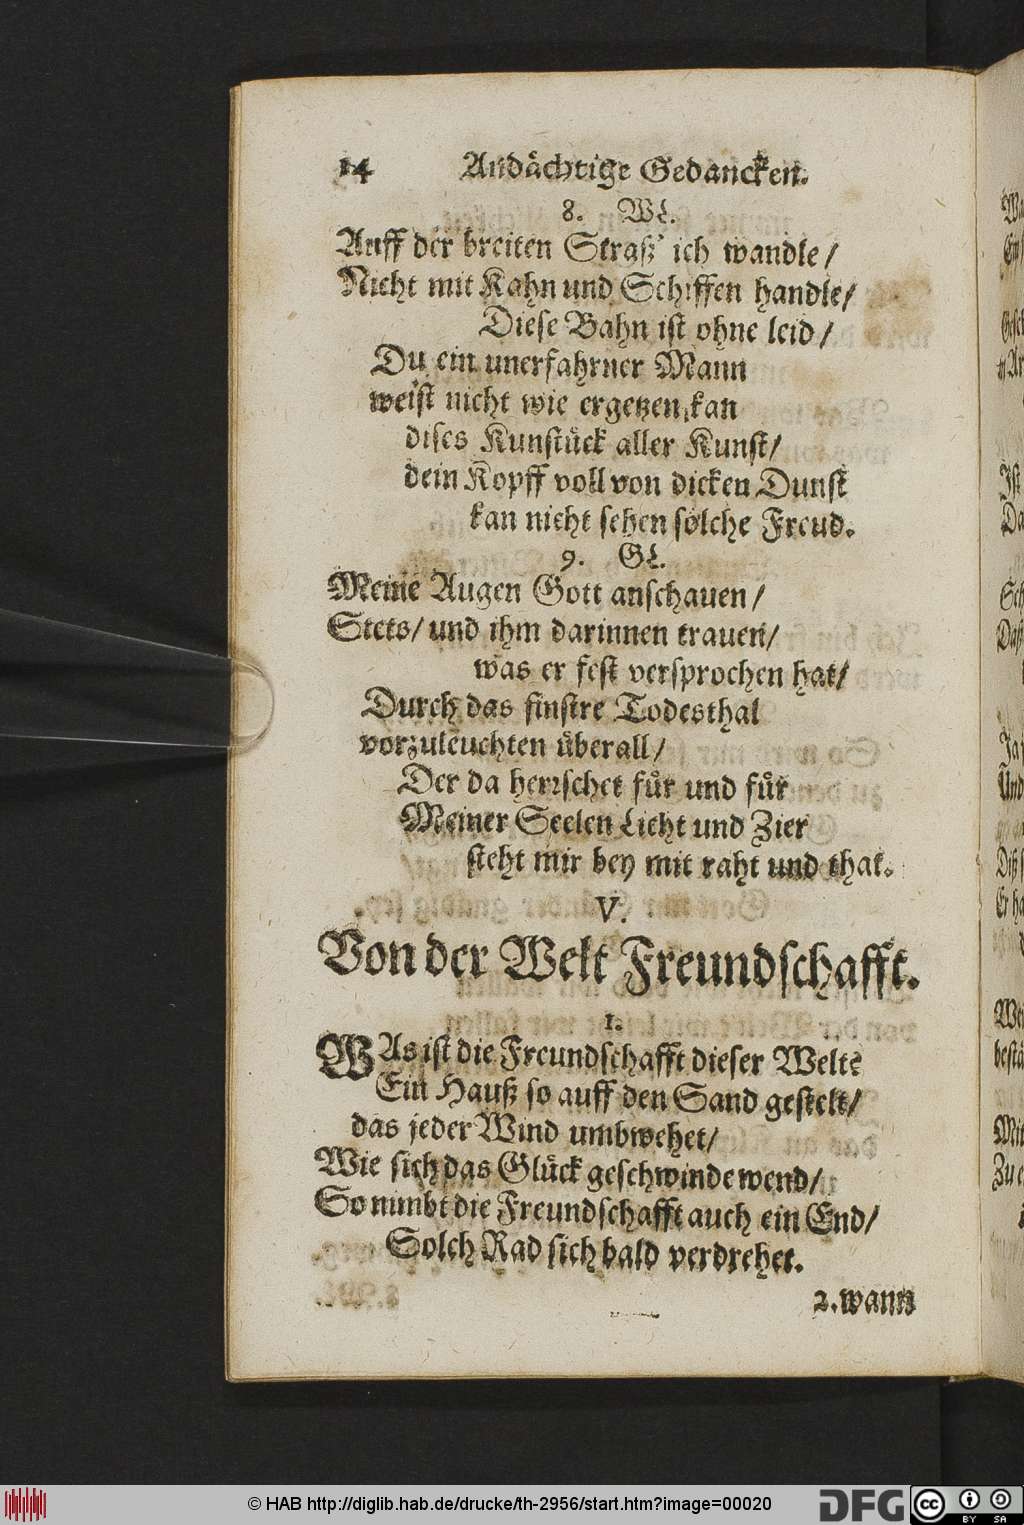 14 Andächtige Gedancken.
8. WL.
Auff der breiten Straß' ich wandle/
Nicht mit Kahn und Schiffen handle/
Diese Bahn ist ohne leid/
Du ein unerfahrner Mann
weist nicht wie ergetzen kan
dises Kunstück aller Kunst/
dein Kopff voll von dicken Dunst
kan nicht sehen solche Freud.
9. GL.
Meine Augen Gott anschauen/
Stets/ und ihm darinnen trauen/
was er fest versprochen hat/
Durch das finstre Todesthal
vorzuleuchten überall/
Der da herrschet für und für
Meiner Seelen Licht und Zier
steht mir bey mit raht und that.
V.
Von der Welt Freundschafft.
1.
WAs ist die Freundschafft dieser Welt?
Ein Hauß so auff den Sand gestelt/
das jeder Wind umbwehet/
Wie sich das Glück geschwinde wend/
So nimbt die Freundschafft auch ein End/
Solch Rad sich bald verdrehet.
2. wann
© HAB http://diglib.hab.de/drucke/th-2956/start.htm?image=00020
DFG
cc BY SA